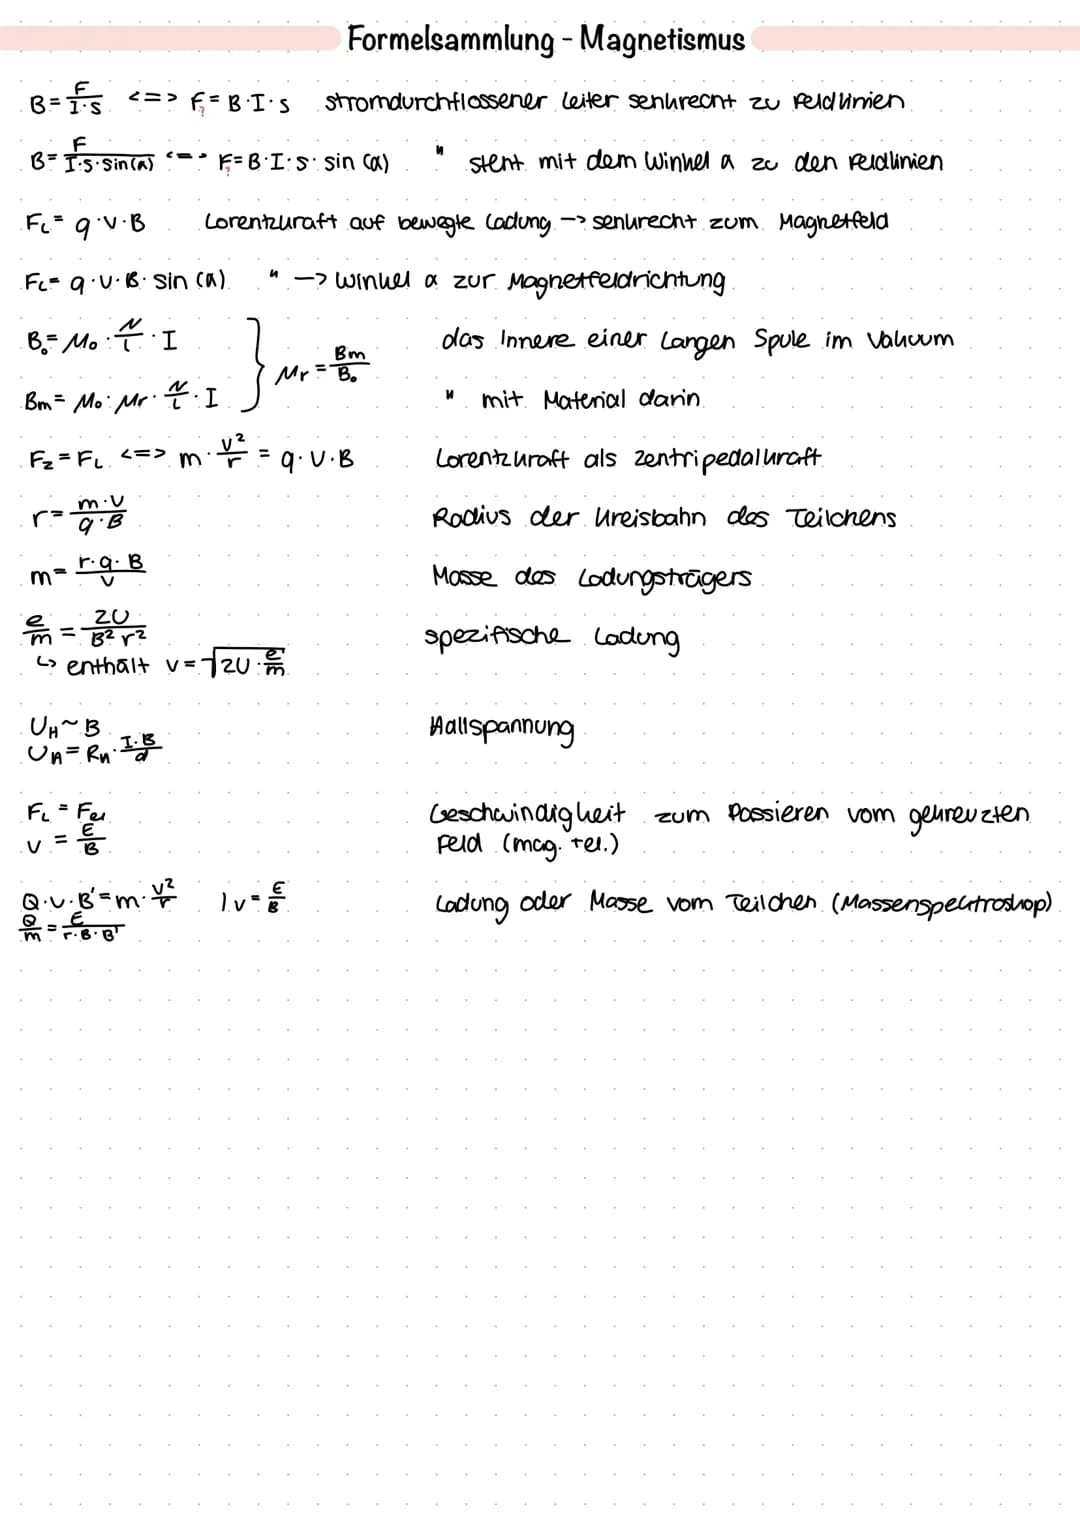 Formelsammlung - Magnetismus
B = F/(I·s) <=> F = B·I·s stromdurchflossener Leiter senkrecht zu Feldlinien
B = F/(I·s·sin(α)) <=> F = B·I·s·sin(α) " steht mit dem Winkel α zu den Feldlinien
F_L = q·v·B Lorentzkraft auf bewegte Ladung -> senkrecht zum Magnetfeld
F_L = q·v·B·sin(α) " -> Winkel α zur Magnetfeldrichtung
B₀ = μ₀·N/l·I das Innere einer langen Spule im Vakuum
} μr = Bm/B₀
Bm = μ₀·μr·N/l·I " mit Material darin
F_Z = F_L <=> m·v²/r = q·v·B Lorentzkraft als Zentripedalkraft
r = m·v/(q·B) Radius der Kreisbahn des Teilchens
m = r·q·B/v Masse des Ladungsträgers
e/m = 2U/(B²r²) spezifische Ladung
↳ enthält v = √(2U·e/m)
U_H ~ B Hallspannung
U_H = R_H·I·B/d
F_L = F_el Geschwindigkeit zum Passieren vom gekreuzten
v = E/B Feld (mag. + el.)
Q·v·B' = m·v²/r | v = E/B Ladung oder Masse vom Teilchen (Massenspektroskop)
Q/m = E/(r·B·B')